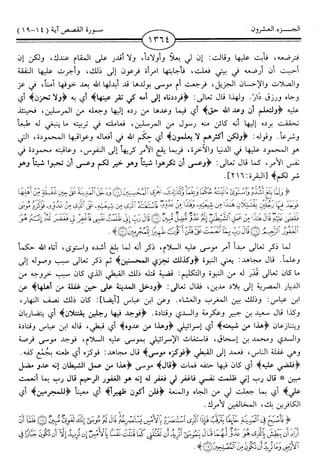 الجـــزء العشـرون
سـورة القصص آية (١٤-١٩)
١٣٦٤
فترضعه، فأبت عليها وقالت: إن لي بعلاً وأولاداً، ولا أقدر على المقام عندك، ولكن إن
أحببت أن أرضعه في بيتي فعلت، فأجابتها امرأة فرعون إلى ذلك، وأجرت عليها النفقة
والصلات والإحسان الجزيل، فرجعت أم موسى بولدها قد أبدلها الله بعد خوفها أمناً، في عز
وجاه ورزق دارّ. ولهذا قال تعالى: ﴿فرددناه إلى أمه كي تقر عينها﴾ أي به ﴿ولا تحزن﴾ أي
عليه ﴿ولتعلم أن وعد الله حق﴾ أي فيما وعدها من رده إليها وجعله من المرسلين، فحينئذ
تحققت برده إليها أنه كائن منه رسول من المرسلين، فعاملته في تربيته ما ينبغي له طبعاً
وشرعاً. وقوله: ﴿ولكن أكثرهم لا يعلمون﴾ أي حكم الله في أفعاله وعواقبها المحمودة، التي
هو المحمود عليها في الدنيا والآخرة، فربما يقع الأمر كريهاً إلى النفوس، وعاقبته محمودة في
نفس الأمر، كما قال تعالى: ﴿وعسى أن تكرهوا شيئاً وهو خير لكم وعسى أن تحبوا شيئاً وهو
شر لكم﴾ [البقرة:٢١٦].
﴿ وَلَمَّا بَلَغَ أَشُدَّهُ وَاسْتَوَىٰ ءَاتَيْنَاهُ حُكْمًا وَعِلْمًا وَكَذَٰلِكَ نَجْزِي الْمُحْسِنِينَ ۝ وَدَخَلَ الْمَدِينَةَ عَلَىٰ حِينِ غَفْلَةٍ مِّنْ أَهْلِهَا
لما ذكر تعالى مبدأ أمر موسى عليه السلام، ذكر أنه لما بلغ أشده واستوى، آتاه الله حكماً
وعلماً. قال مجاهد: يعني النبوة ﴿وكذلك نجزي المحسنين﴾ ثم ذكر تعالى سبب وصوله إلى
ما كان تعالى قدّر له من النبوة والتكليم: قضية قتله ذلك القبطي الذي كان سبب خروجه من
الديار المصرية إلى بلاد مدين، فقال تعالى: ﴿ودخل المدينة على حين غفلة من أهلها﴾ عن
ابن عباس: وذلك بين المغرب والعشاء. وعن ابن عباس [أيضاً]: كان ذلك نصف النهار،
وكذا قال سعيد بن جبير وعكرمة والسدي وقتادة. ﴿فوجد فيها رجلين يقتتلان﴾ أي يتضاربان
ويتنازعان ﴿هذا من شيعته﴾ أي إسرائيلي ﴿وهذا من عدوه﴾ أي قبطي، قاله ابن عباس وقتادة
والسدي ومحمد بن إسحاق، فاستغاث الإسرائيلي بموسى عليه السلام، فوجد موسى فرصة
وهي غفلة الناس، فعمد إلى القبطي ﴿فوكزه موسى﴾ قال مجاهد: فوكزه أي طعنه بجُمع كفه.
﴿فقضى عليه﴾ أي كان فيها حتفه فمات ﴿قال﴾ موسى ﴿هذا من عمل الشيطان إنه عدو مضل
مبين * قال رب إني ظلمت نفسي فاغفر لي فغفر له إنه هو الغفور الرحيم قال رب بما أنعمت
علي﴾ أي بما جعلت لي من الجاه والمنعة ﴿فلن أكون ظهيراً﴾ أي معيناً ﴿للمجرمين﴾ أي
الكافرين بك، المخالفين لأمرك.